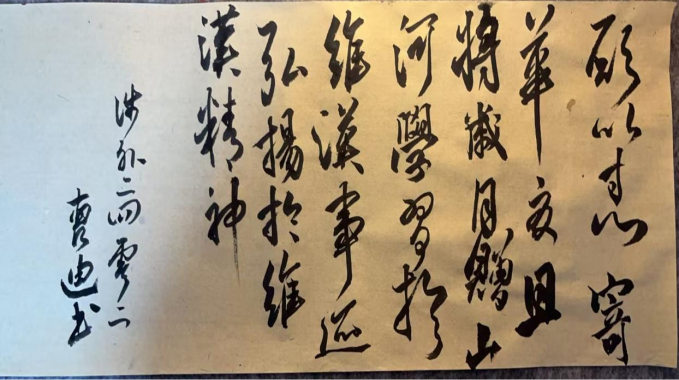 願以寸心寄
華夏且
將歲月贈山
河學習於
維漢事迹
弘揚於維
漢精神
涉外二四零二
曹迪书